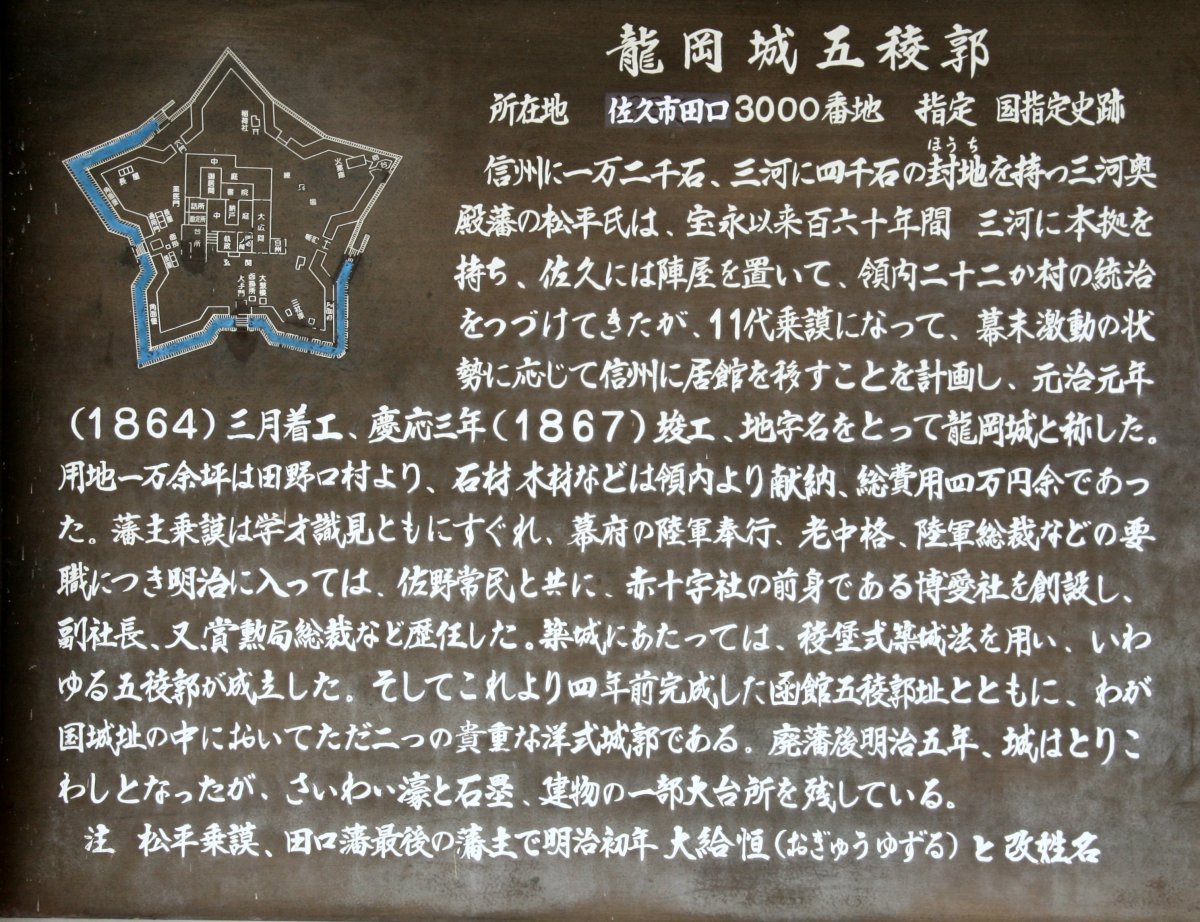 龍岡城五稜郭
所在地 佐久市田口3000番地 指定 国指定史跡
ほうち
信州に一万二千石、三河に四千石の封地を持つ三河奥
殿藩の松平氏は、宝永以来百六十年間 三河に本拠を
持ち、佐久には陣屋を置いて、領内二十二か村の統治
をつづけてきたが、11代乗謨になって、幕末激動の状
勢に応じて信州に居館を移すことを計画し、元治元年
(1864)三月着工、慶応三年(1867)竣工、地字名をとって龍岡城と称した。
用地一万余坪は田野口村より、石材木材などは領内より献納、総費用四万円余であっ
た。藩主乗謨は学才識見ともにすぐれ、幕府の陸軍奉行、老中格、陸軍総裁などの要
職につき明治に入っては、佐野常民と共に、赤十字社の前身である博愛社を創設し、
副社長、又賞勲局総裁など歴任した。築城にあたっては、稜堡式築城法を用い、いわ
ゆる五稜郭が成立した。そしてこれより四年前完成した函館五稜郭址とともに、わが
国城址の中においてただ二つの貴重な洋式城郭である。廃藩後明治五年、城はとりこ
わしとなったが、さいわい濠と石塁、建物の一部大台所を残している。
注 松平乗謨、田口藩最後の藩主で明治初年 大給恒(おぎゅうゆずる)と改姓名
稲荷社
火薬庫
中庭
書院
御居間
詰所
中庭
納戸
大広間
台所
玄関
大手門